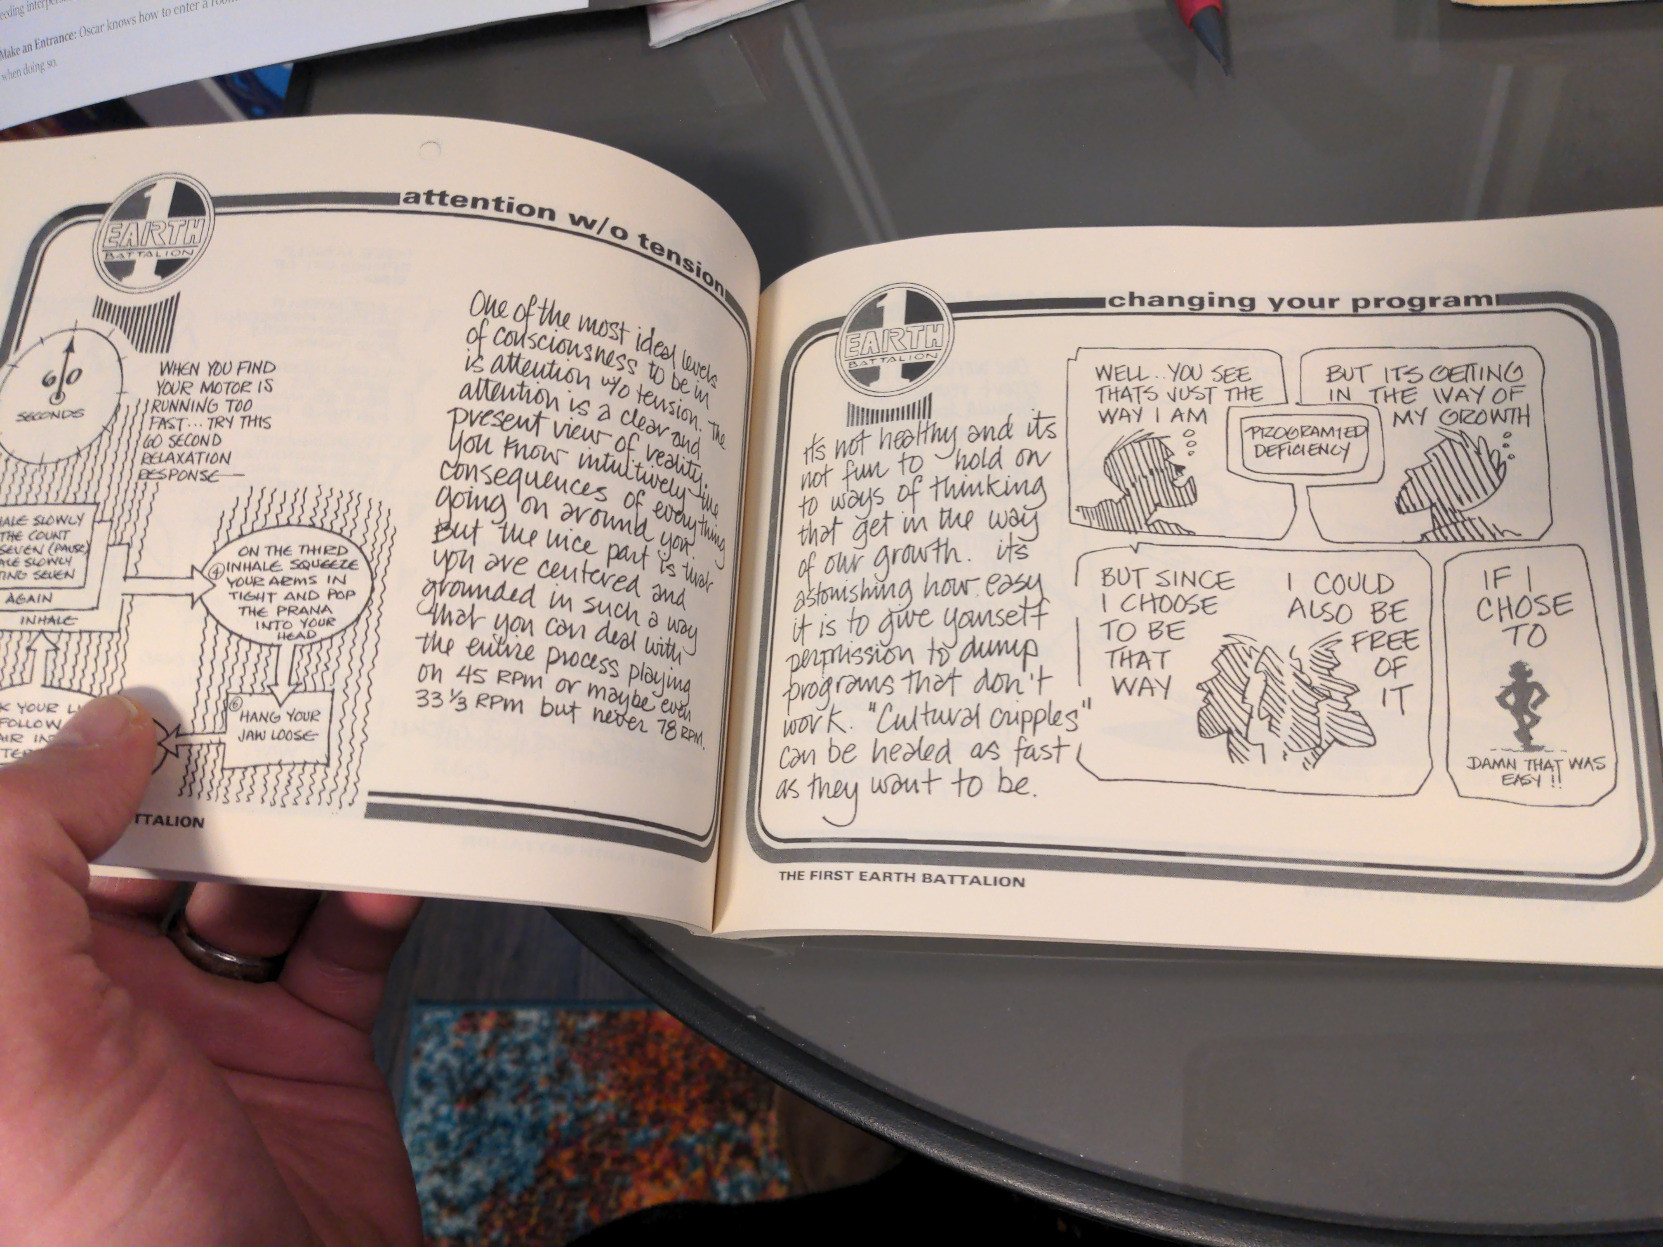 Make an Entrance: Oscar knows how to enter a
when doing so.
attention w/o tension
1
EARTH
BATTALION
60
SECONDS
WHEN YOU FIND
YOUR MOTOR IS
RUNNING TOO
FAST... TRY THIS
60 SECOND
RELAXATION
RESPONSE—
SLOWLY
THE COUNT
SEVEN (PAUSE)
SLOWLY
SEVEN
AGAIN
INHALE
ON THE THIRD
INHALE SQUEEZE
YOUR ARMS IN
TIGHT AND POP
THE PRANA
INTO YOUR
HEAD
HANG YOUR
JAW LOOSE
YOUR
FOLLOW
One of the most ideal levels
of consciousness to be in
is attention w/o tension. The
attention is a clear and
present view of reality.
you know intuitively the
consequences of everything
going on around you.
But the nice part is that
you are centered and
grounded in such a way
that you can deal with
the entire process playing
on 45 RPM or maybe even
33 ⅓ RPM but never 78 RPM.
changing your program
1
EARTH
BATTALION
it's not healthy and its
not fun to hold on
to ways of thinking
that get in the way
of our growth. its
astonishing how easy
it is to give yourself
permission to dump
programs that don't
work. "Cultural cripples"
can be healed as fast
as they want to be.
WELL..YOU SEE
THATS JUST THE
WAY I AM
PROGRAMED
DEFICIENCY
BUT ITS GETTING
IN THE WAY OF
MY GROWTH
BUT SINCE
I CHOOSE
TO BE
THAT
WAY
I COULD
ALSO BE
FREE
OF
IT
IF I
CHOSE
TO
DAMN THAT WAS
EASY !!
THE FIRST EARTH BATTALION